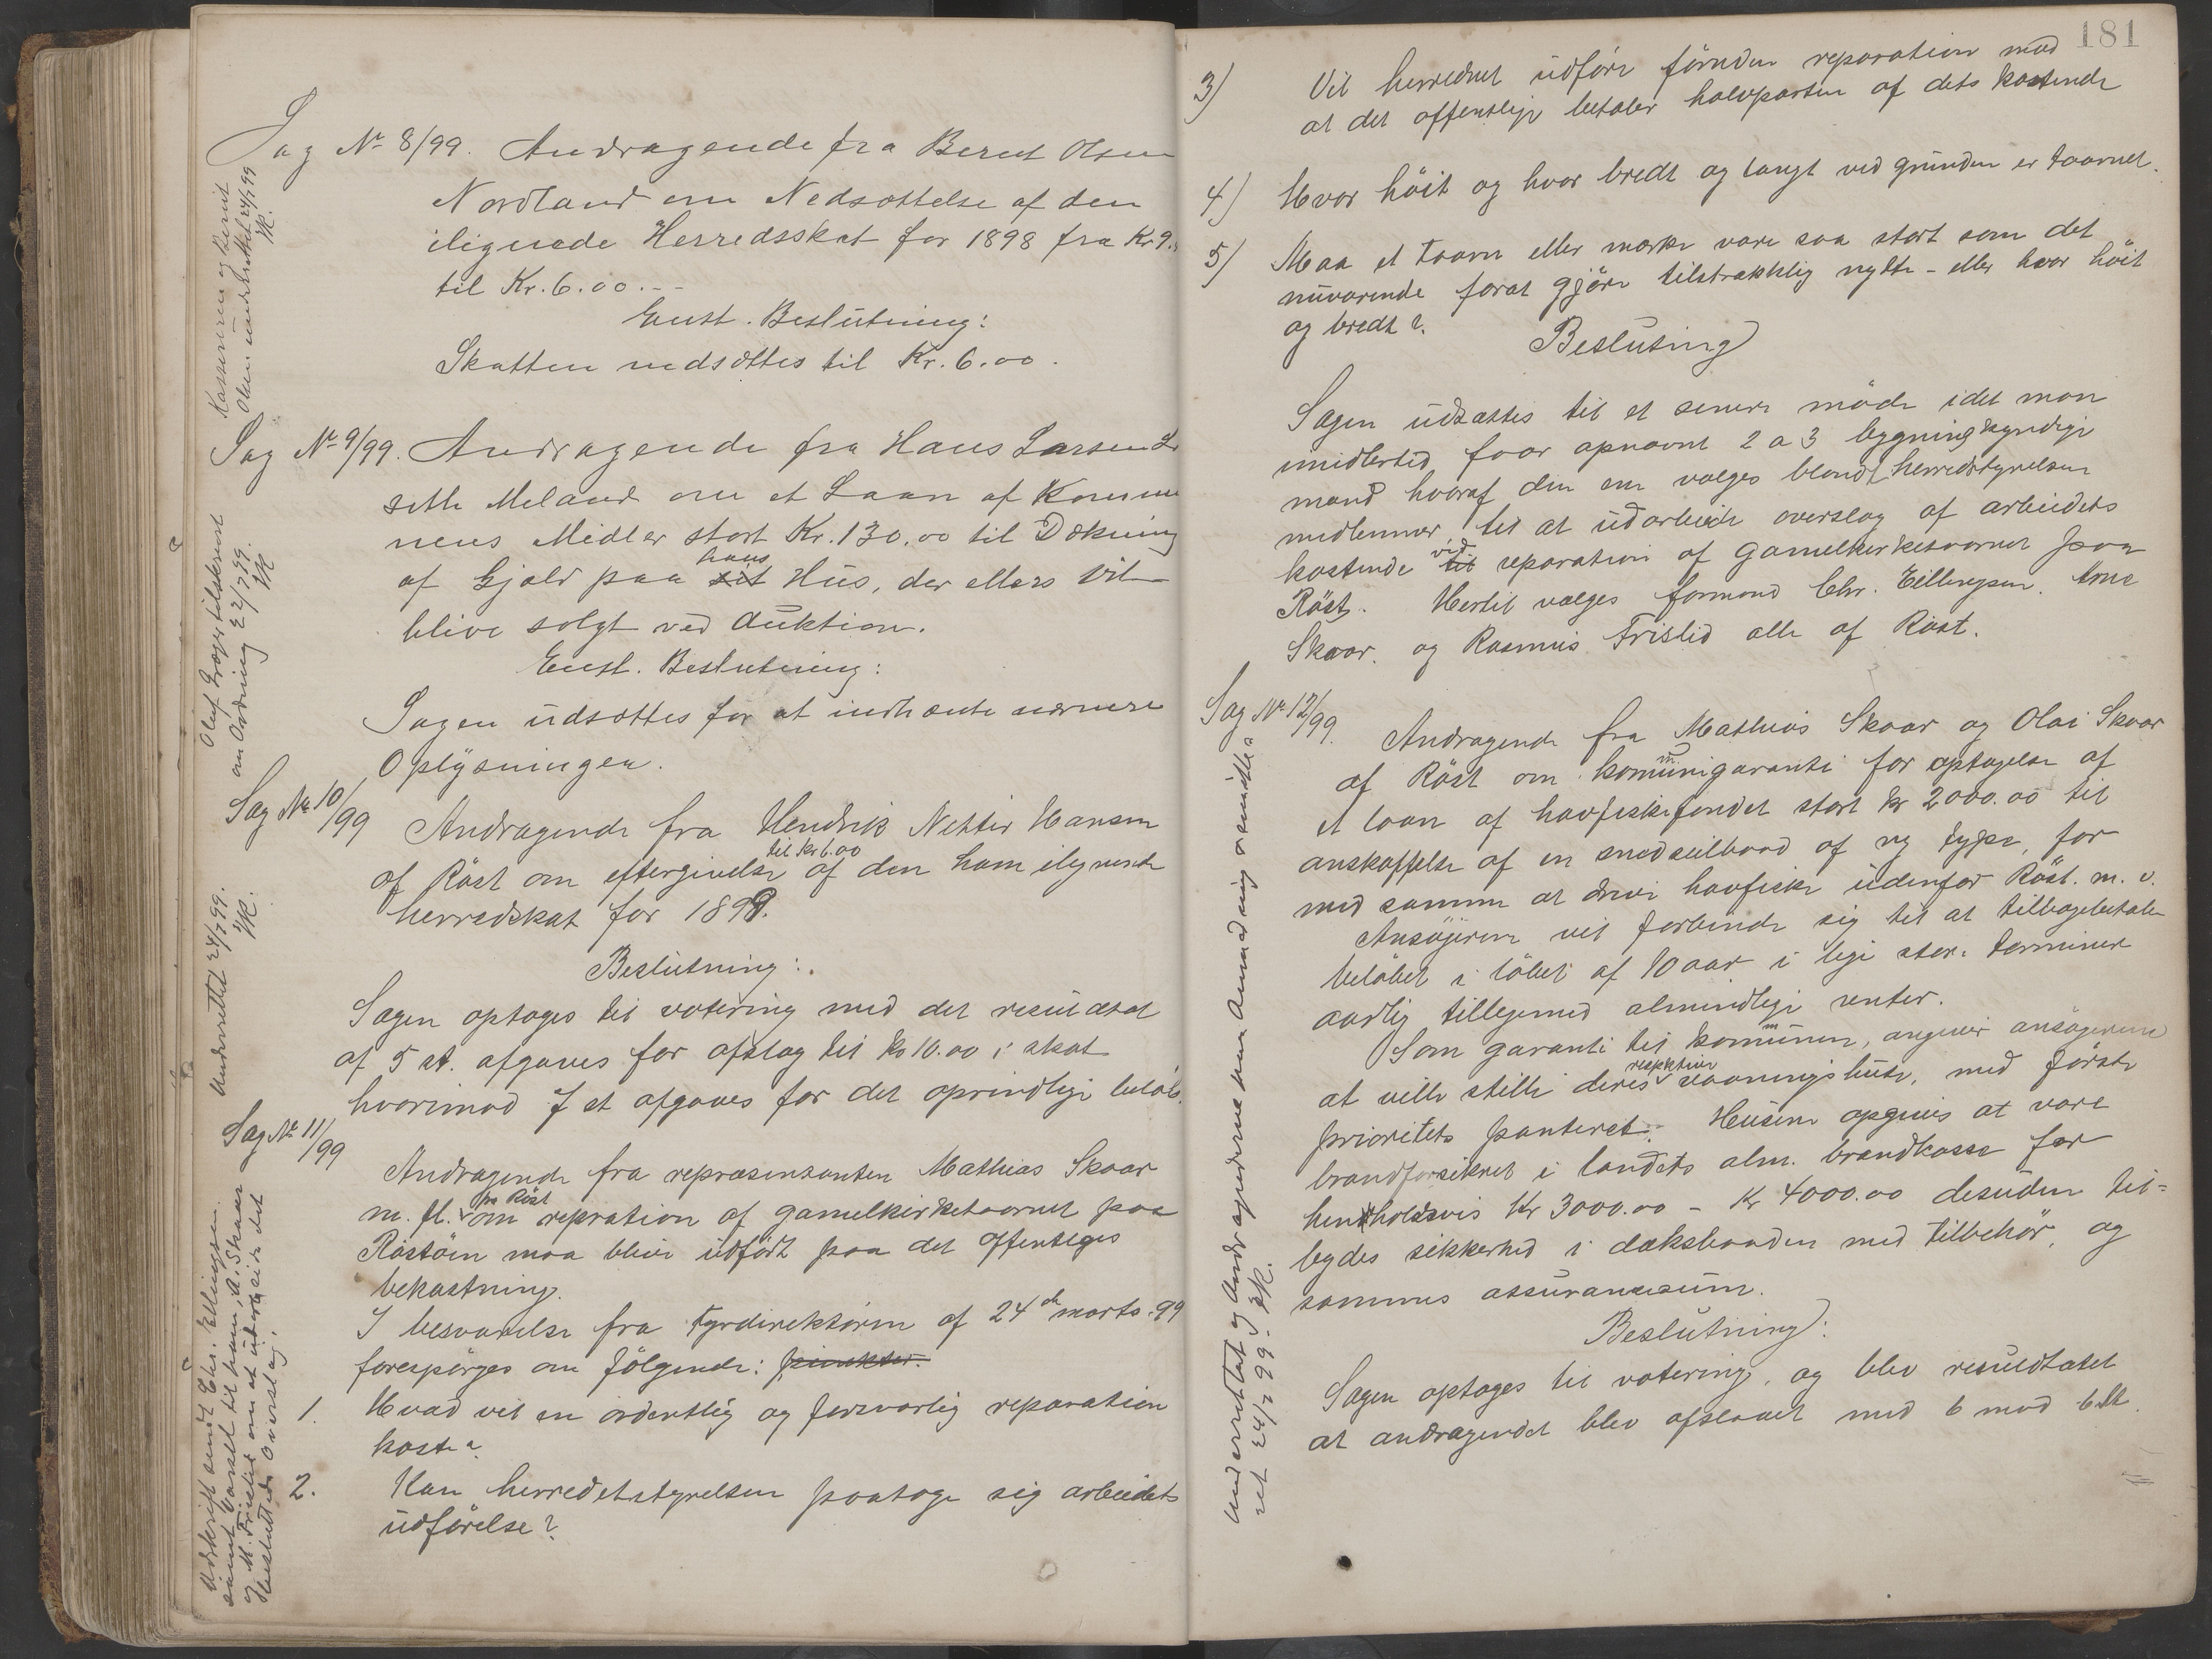 Sag No 8/99. Andragende fra Berut Olsen
Nordland om Nedsættelse af den
ilignede Herredsskat for 1898 fra Kr 9.
til Kr. 6.00.--
Enst. Beslutning:
Skatten nedsættes til Kr. 6.00.
Kasseren og Berut
Olsen underrettet 24/7 99
Sag No 9/99. Andragende fra Hans Larsen
Meland om et Laan af Kommu
nens Midler stort Kr. 130.00 til Dækning
hans
af Gjæld paa sit Hus, der ellers vil
blive solgt ved Auktion.
Enst. Beslutning:
Sagen udsættes for at indhente nærmere
Oplysninger.
Oluf tilskrevet
om Ordning 22/7 99.
Sag No 10/99
Andragende fra Hendrik Hansen
til kr 6.00
af Röst om eftergivelse af den ham ilignede
herredskat for 1899.
Beslutning:
Sagen optoges til votering med det resultatat
af 5 st. afgaves for afslag til kr 10.00 i skat
hvorimod 7 st afgaves for det oprindlige belöb.
Underrettet 24/7 99.
Sag No 11/99
Andragende fra repræsentanten Mathias Skaar
pr Röst
m. fl. om repration af gamelkirketaarnet paa
Röstöen maa blive udfört paa det offentliges
bekostning.
I besvarelse fra Fyrdirektören af 24de marts 99
forespörges om fölgende: punkter.
1. Hvad vil en ordentlig og forsvarlig reparation
koste?
2. Kan herredetstyrelsen paatage sig arbeidets
udförelse?
Udskrift sendt Chr. Ellingsen.
samt Varsel til ham, A. Skaar
og R. Fristid om at udarbeide det
besluttede Overslag.
181
3) Vil herredet udföre förnden reparation mod
at det offentlige betaler halvparten af dets kostende
4) Hvor höit og hvor bredt og langt ved grunden er taarnet.
5) Maa et taarn eller mærke være saa stort som det
nuværende forat gjöre tilstrækklig nytte - eller hvor höit
og bredt?
Beslutning
Sagen udsættes til et senere möde idet man
imidlertid faar opnævnt 2 a 3 bygningskyndige
mænd hvoraf den ene vælges blandt herredstyrelsen
medlemmer, til at udarbeide overslag af arbeidets
vid
kostende til reparation af gamelkirketaarnet paa
Röst. Hertil vælges formand Chr. Ellingsen. Arne
Skaar. og Rasmus Fristid alle af Röst.
Sag No 12/99.
Andragende fra Mathias Skaar og Olai Skaar
af Röst om komunigaranti for optagelse af
et laan af havfiskefondet stort kr 2000.00 til
anskaffelse af en snedseilbaad af ny type, for
med samme at drive havfiske udenfor Röst. m. v.
Ansögerne vil forbinde sig til at tilbagebetale
belöbet i löbet af 10 aar i lige store terminer
aarlig tilligemed almindlige renter.
Som garanti til komunen, angiver ansögerne
respktive
at ville stille deres vaaningshuse, med förste
prioritets panteret. Husene opgives at være
brandforsikret i landets alm. brandkasse for
hendholdsvis Kr 3000.00 - Kr 4000.00 desuden til=
bydes sikkerhed i dæksbaaden med tilbehör, og
sammes assurancesum.
Beslutning:
Sagen optoges til votering, og blev resuldtatet
at andragendet blev afslaaet med 6 mod 6 st.
Underrettet
24/7 99.